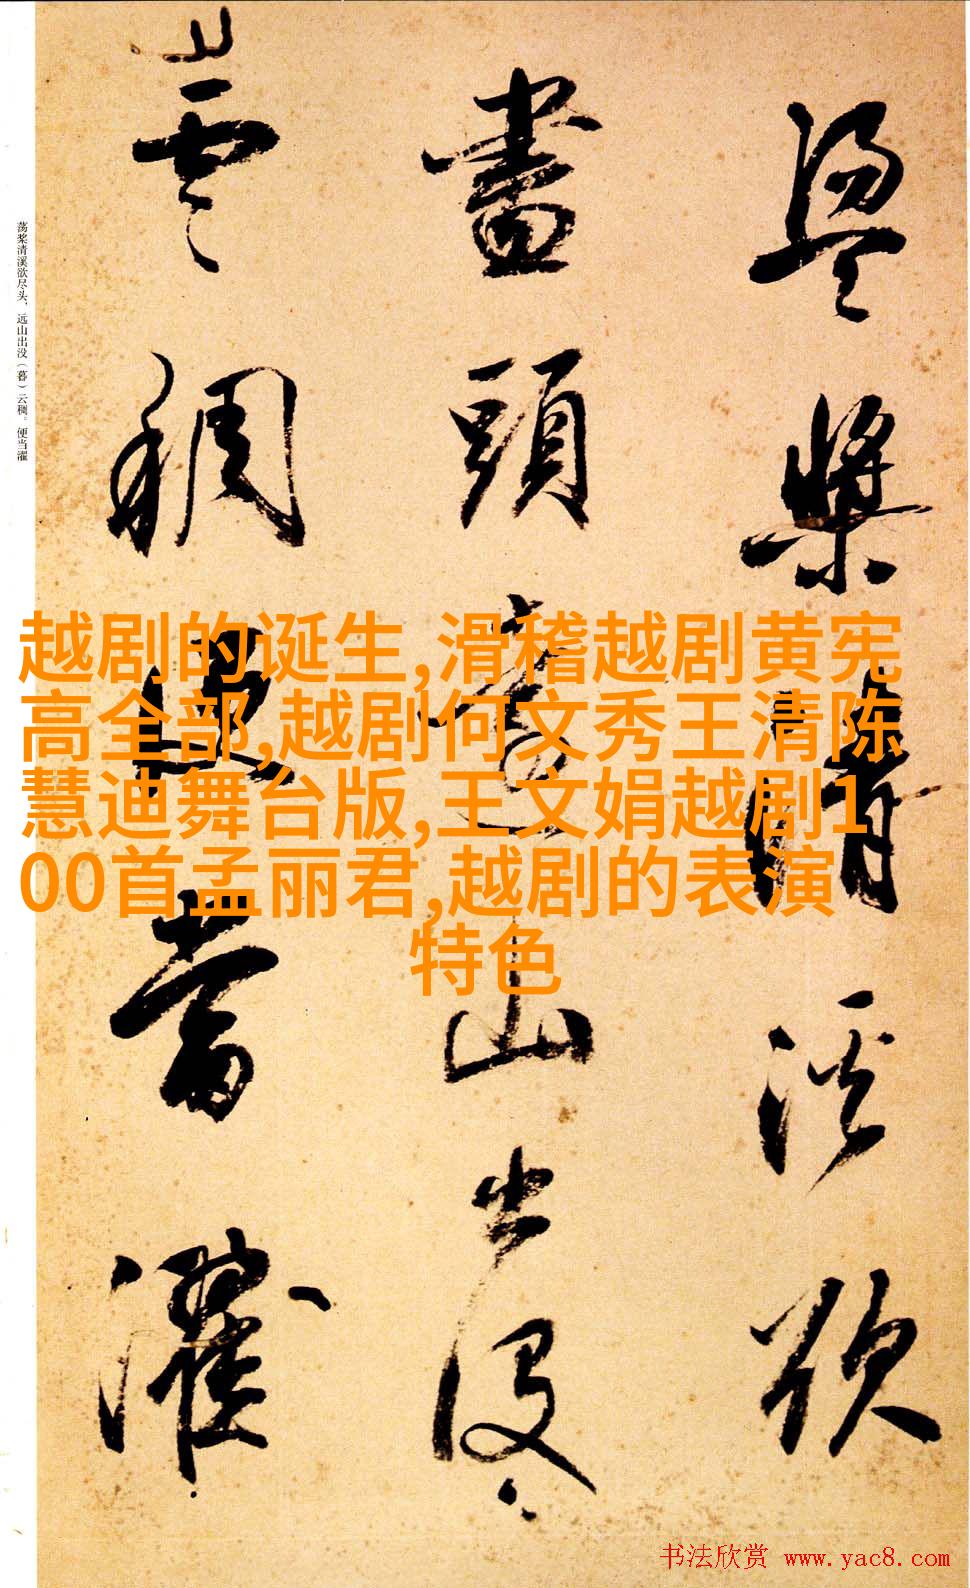 盪槳清溪欲
盡頭遠山出没
雲稠便當濯
荡桨清溪欲尽头，远山出没（暮）云稠。便当濯
越剧的诞生,滑稽越剧黄宪
高全部,越剧何文秀王清陈
慧迪舞台版,王文娟越剧1
00首孟丽君,越剧的表演
特色
书法欣赏 www.yac8.com